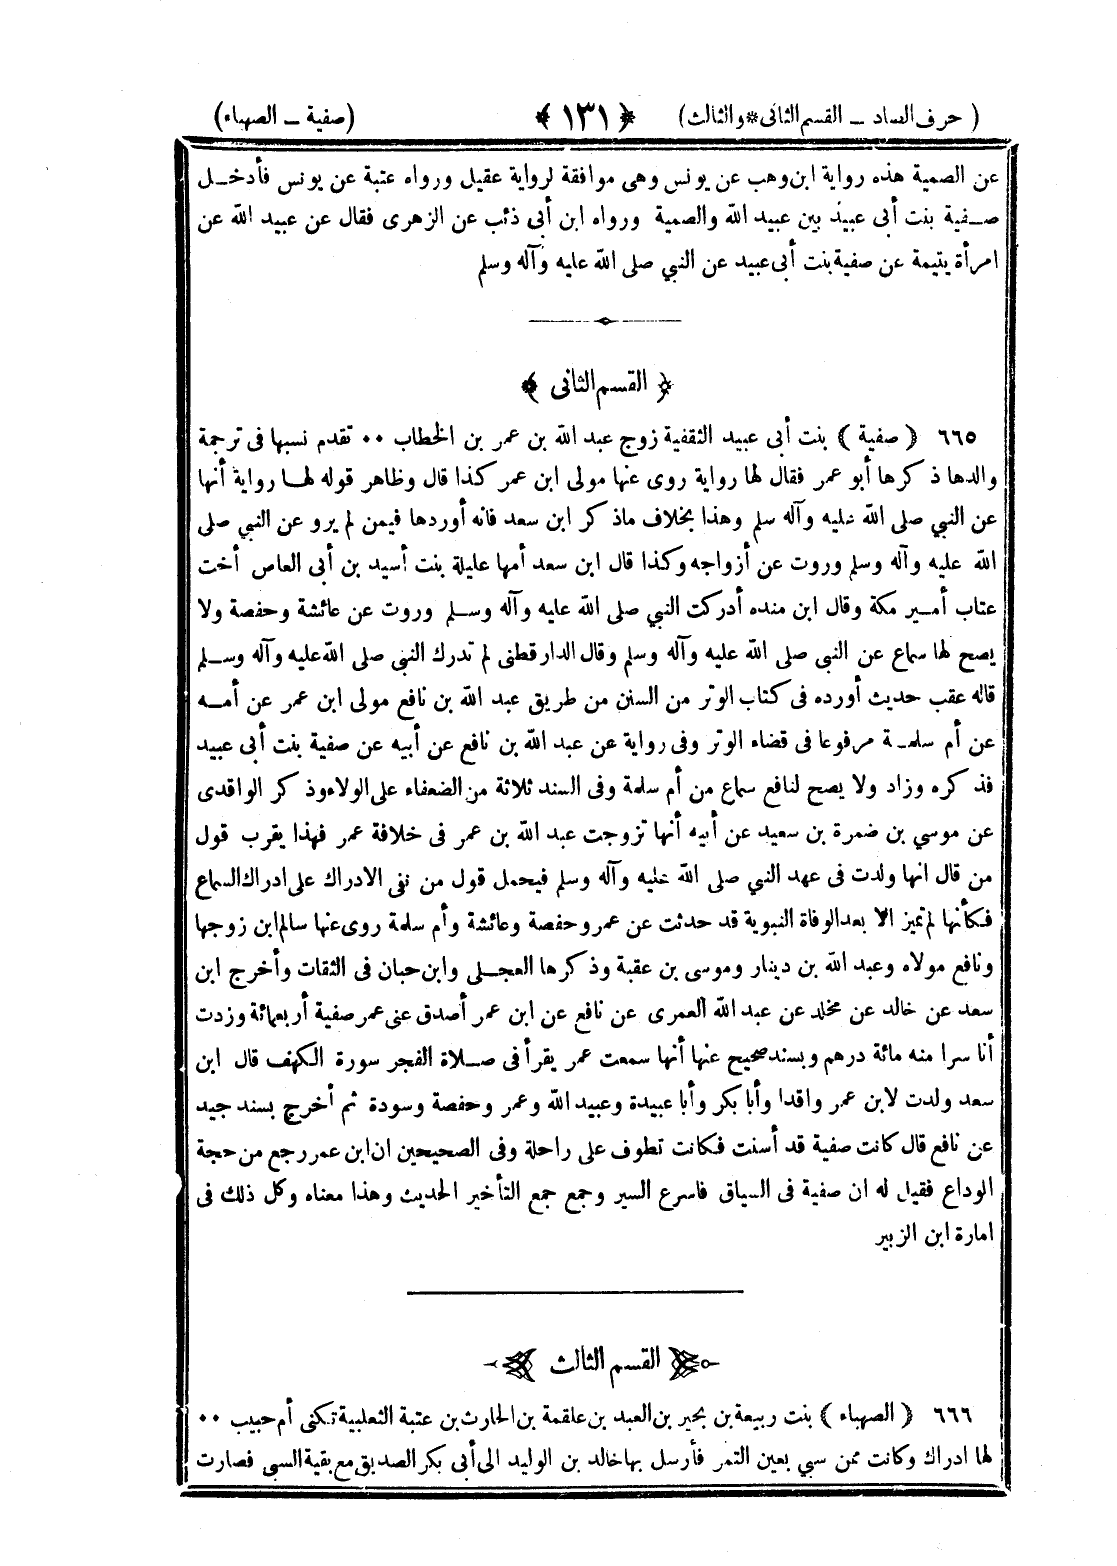 ( حرف الصاد – القسم الثانى * والثالث ) ﴿ ١٣١ ﴾ (صفية – الصهباء)
عن الصمية هذه رواية ابن وهب عن يونس وهى موافقة لرواية عقيل ورواه عتبة عن يونس فأدخل
صفية بنت أبى عبيد بين عبيد الله والصمية ورواه ابن أبى ذئب عن الزهرى فقال عن عبيد الله عن
امرأة يتيمة عن صفية بنت أبى عبيد عن النبي صلى الله عليه وآله وسلم
﴿ القسم الثانى ﴾
٦٦٥ ( صفية ) بنت أبى عبيد الثقفية زوج عبد الله بن عمر بن الخطاب ۰۰ تقدم نسبها فى ترجمة
والدها ذكرها أبو عمر فقال لها رواية روى عنها مولى ابن عمر كذا قال وظاهر قوله لها رواية أنها
عن النبي صلى الله عليه وآله سلم وهذا بخلاف ماذكر ابن سعد فانه أوردها فيمن لم يرو عن النبي صلى
الله عليه وآله وسلم وروت عن أزواجه وكذا قال ابن سعد أمها عليلة بنت أسيد بن أبى العاص أخت
عتاب أمير مكة وقال ابن منده أدركت النبي صلى الله عليه وآله وسلم وروت عن عائشة وحفصة ولا
يصح لها سماع عن النبى صلى الله عليه وآله وسلم وقال الدارقطنى لم تدرك النبى صلى الله عليه وآله وسلم
قاله عقب حديث أورده فى كتاب الوتر من السنن من طريق عبد الله بن نافع مولى ابن عمر عن أمه
عن أم سلمة مرفوعا فى قضاء الوتر وفى رواية عن عبد الله بن نافع عن أبيه عن صفية بنت أبى عبيد
فذكره وزاد ولا يصح لنافع سماع من أم سلمة وفى السند ثلاثة من الضعفاء على الولاء وذكر الواقدى
عن موسي بن ضمرة بن سعيد عن أبيه أنها تزوجت عبد الله بن عمر فى خلافة عمر فهذا يقرب قول
من قال انها ولدت فى عهد النبي صلى الله عليه وآله وسلم فيحمل قول من نفى الادراك على ادراك السماع
فكأنها لم تميز الا بعد الوفاة النبوية قد حدثت عن عمر وحفصة وعائشة وأم سلمة روى عنها سالم ابن زوجها
ونافع مولاه وعبد الله بن دينار وموسى بن عقبة وذكرها العجلى وابن حبان فى الثقات وأخرج ابن
سعد عن خالد عن مخلد عن عبد الله العمرى عن نافع عن ابن عمر أصدق عنى عمر صفية أربعمائة وزدت
أنا سرا منه مائة درهم وبسند صحيح عنها أنها سمعت عمر يقرأ فى صلاة الفجر سورة الكهف قال ابن
سعد ولدت لابن عمر واقدا وأبا بكر وأبا عبيدة وعبيد الله وعمر وحفصة وسودة ثم أخرج بسند جيد
عن نافع قال كانت صفية قد أسنت فكانت تطوف على راحلة وفى الصحيحين ان ابن عمر رجع من حجة
الوداع فقيل له ان صفية فى السياق فاسرع السير وجمع جمع التأخير الحديث وهذا معناه وكل ذلك فى
امارة ابن الزبير
﴿ القسم الثالث ﴾
٦٦٦ ( الصهباء ) بنت ربيعة بن بجير بن العبد بن علقمة بن الحارث بن عتبة الثعلبية تكنى أم حبيب ۰۰
لها ادراك وكانت ممن سبي بعين التمر فأرسل بها خالد بن الوليد الى أبى بكر الصديق مع بقية السبى فصارت